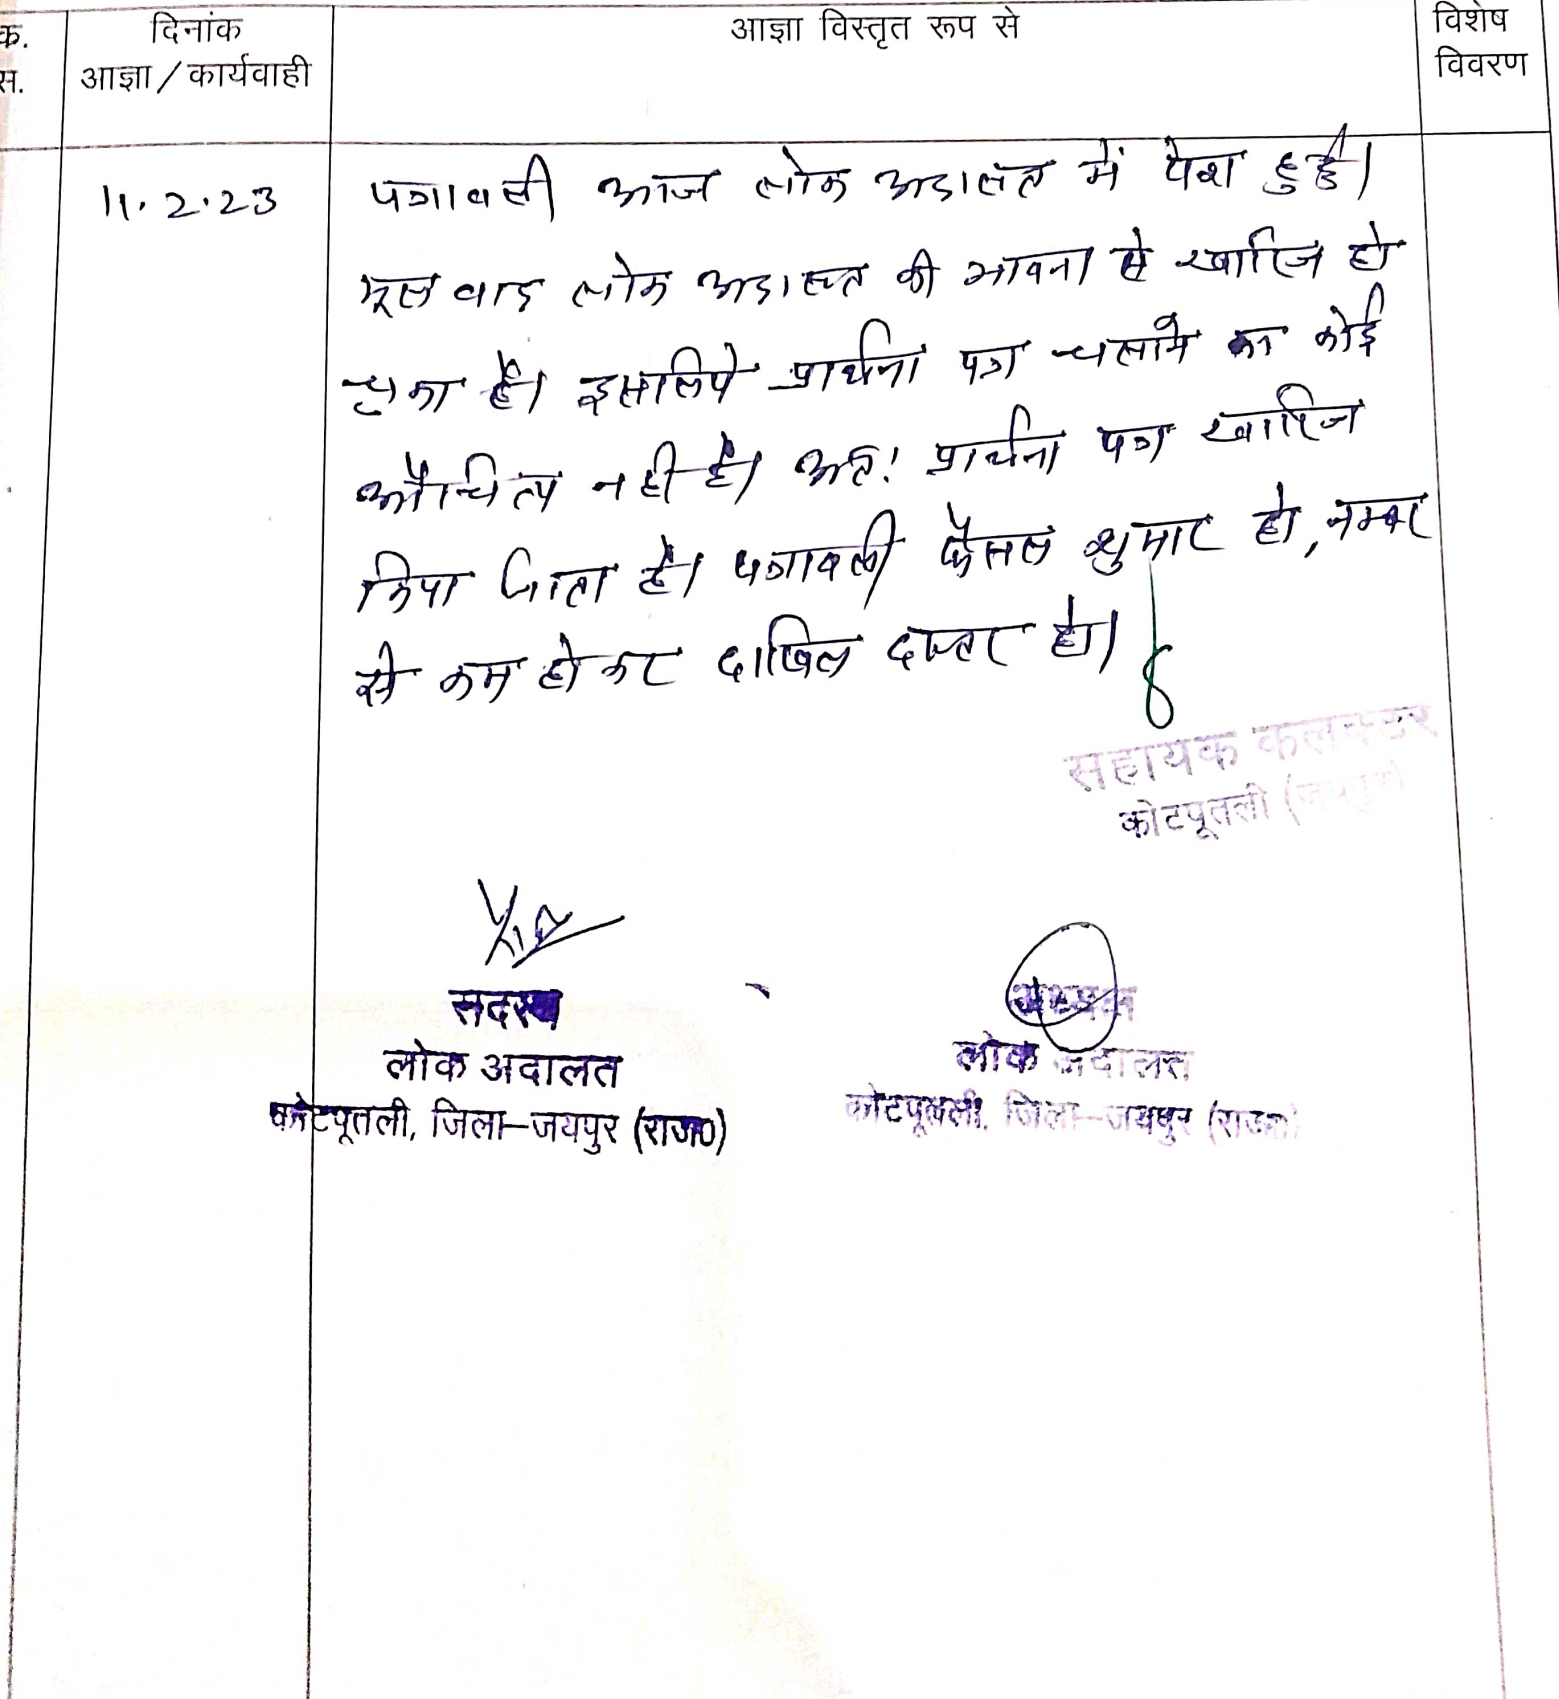 क.
स.
दिनांक
आज्ञा / कार्यवाही
आज्ञा विस्तृत रूप से
विशेष
विवरण
11.2.23
पत्रावली आज लोक अदालत में पेश हुई।
मूल वाद लोक अदालत की भावना से खारिज हो
चुका है। इसलिये प्रार्थना पत्र चलाने का कोई
औचित्य नही है। अतः प्रार्थना पत्र खारिज
किया जाता है। पत्रावली फैसल शुमार हो, नम्बर
से कम होकर दाखिल दफ्तर हो।
सहायक कलक्टर
कोटपूतली (जयपुर)
सदस्य
लोक अदालत
कोटपूतली, जिला-जयपुर (राज0)
अध्यक्ष
लोक अदालत
कोटपूतली, जिला-जयपुर (राज0)